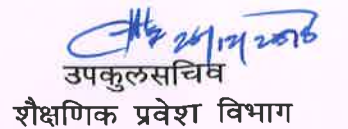 24/12/2018
उपकुलसचिव
शैक्षणिक प्रवेश विभाग